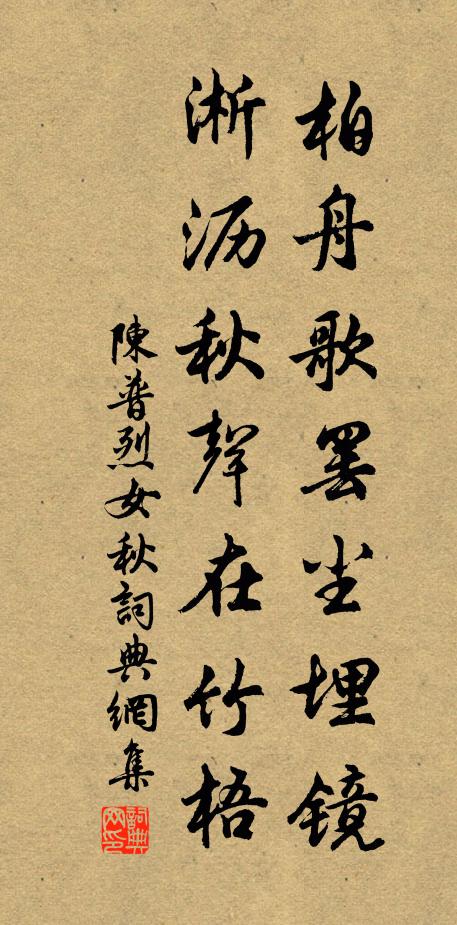 柏舟歌罢尘埋镜
淅沥秋聲在竹梧
陳普烈女秋詞典網集
詞典网印